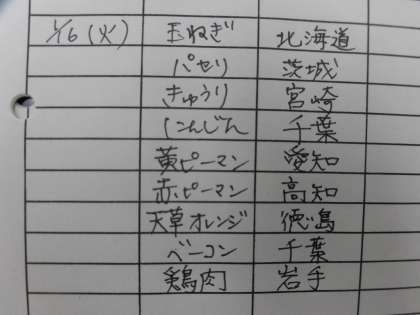 1/16(火) 玉ねぎ 北海道
パセリ 茨城
きゅうり 宮崎
にんじん 千葉
黄ピーマン 愛知
赤ピーマン 高知
天草オレンジ 徳島
ベーコン 千葉
鶏肉 岩手